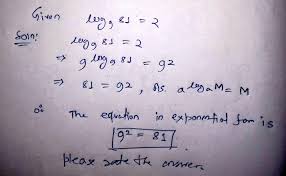 Given log₉ 81 = 2
Soln:
log₉ 81 = 2
⇒ 9^log₉ 81 = 9²
⇒ 81 = 9² , As. a^logₐM = M
∴ The equation in exponential form is
9² = 81
please rate the answer.